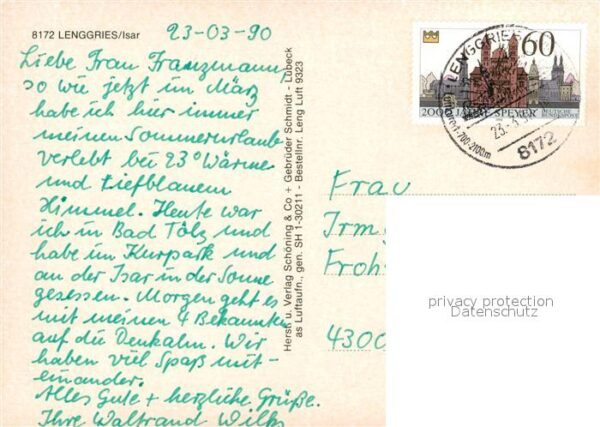 8172 LENGGRIES/Isar
23-03-90
Liebe Frau Franzmann,
so wie jetzt im März
habe ich hier immer
meinen Sommerurlaub
verlebt bei 23° Wärme
und tiefblauem
Himmel. Heute war
ich in Bad Tölz und
habe im Kurpark und
an der Isar in der Sonne
gesessen. Morgen geht es
mit meinen 4 Bekannten
auf die Denkalm. Wir
haben viel Spaß mit-
einander.
Alles Gute + herzliche Grüße.
Ihre Waltraud Wilks
Herst. u. Verlag Schöning & Co + Gebrüder Schmidt - Lübeck
as Luftaufn., gen. SH 1-30211 - Bestellnr. Leng Luft 9323
60
2000 JAHRE SPEYER
LENGGRIES
700-2100m
8172
Frau
Irmg
Froh
4300
privacy protection
Datenschutz